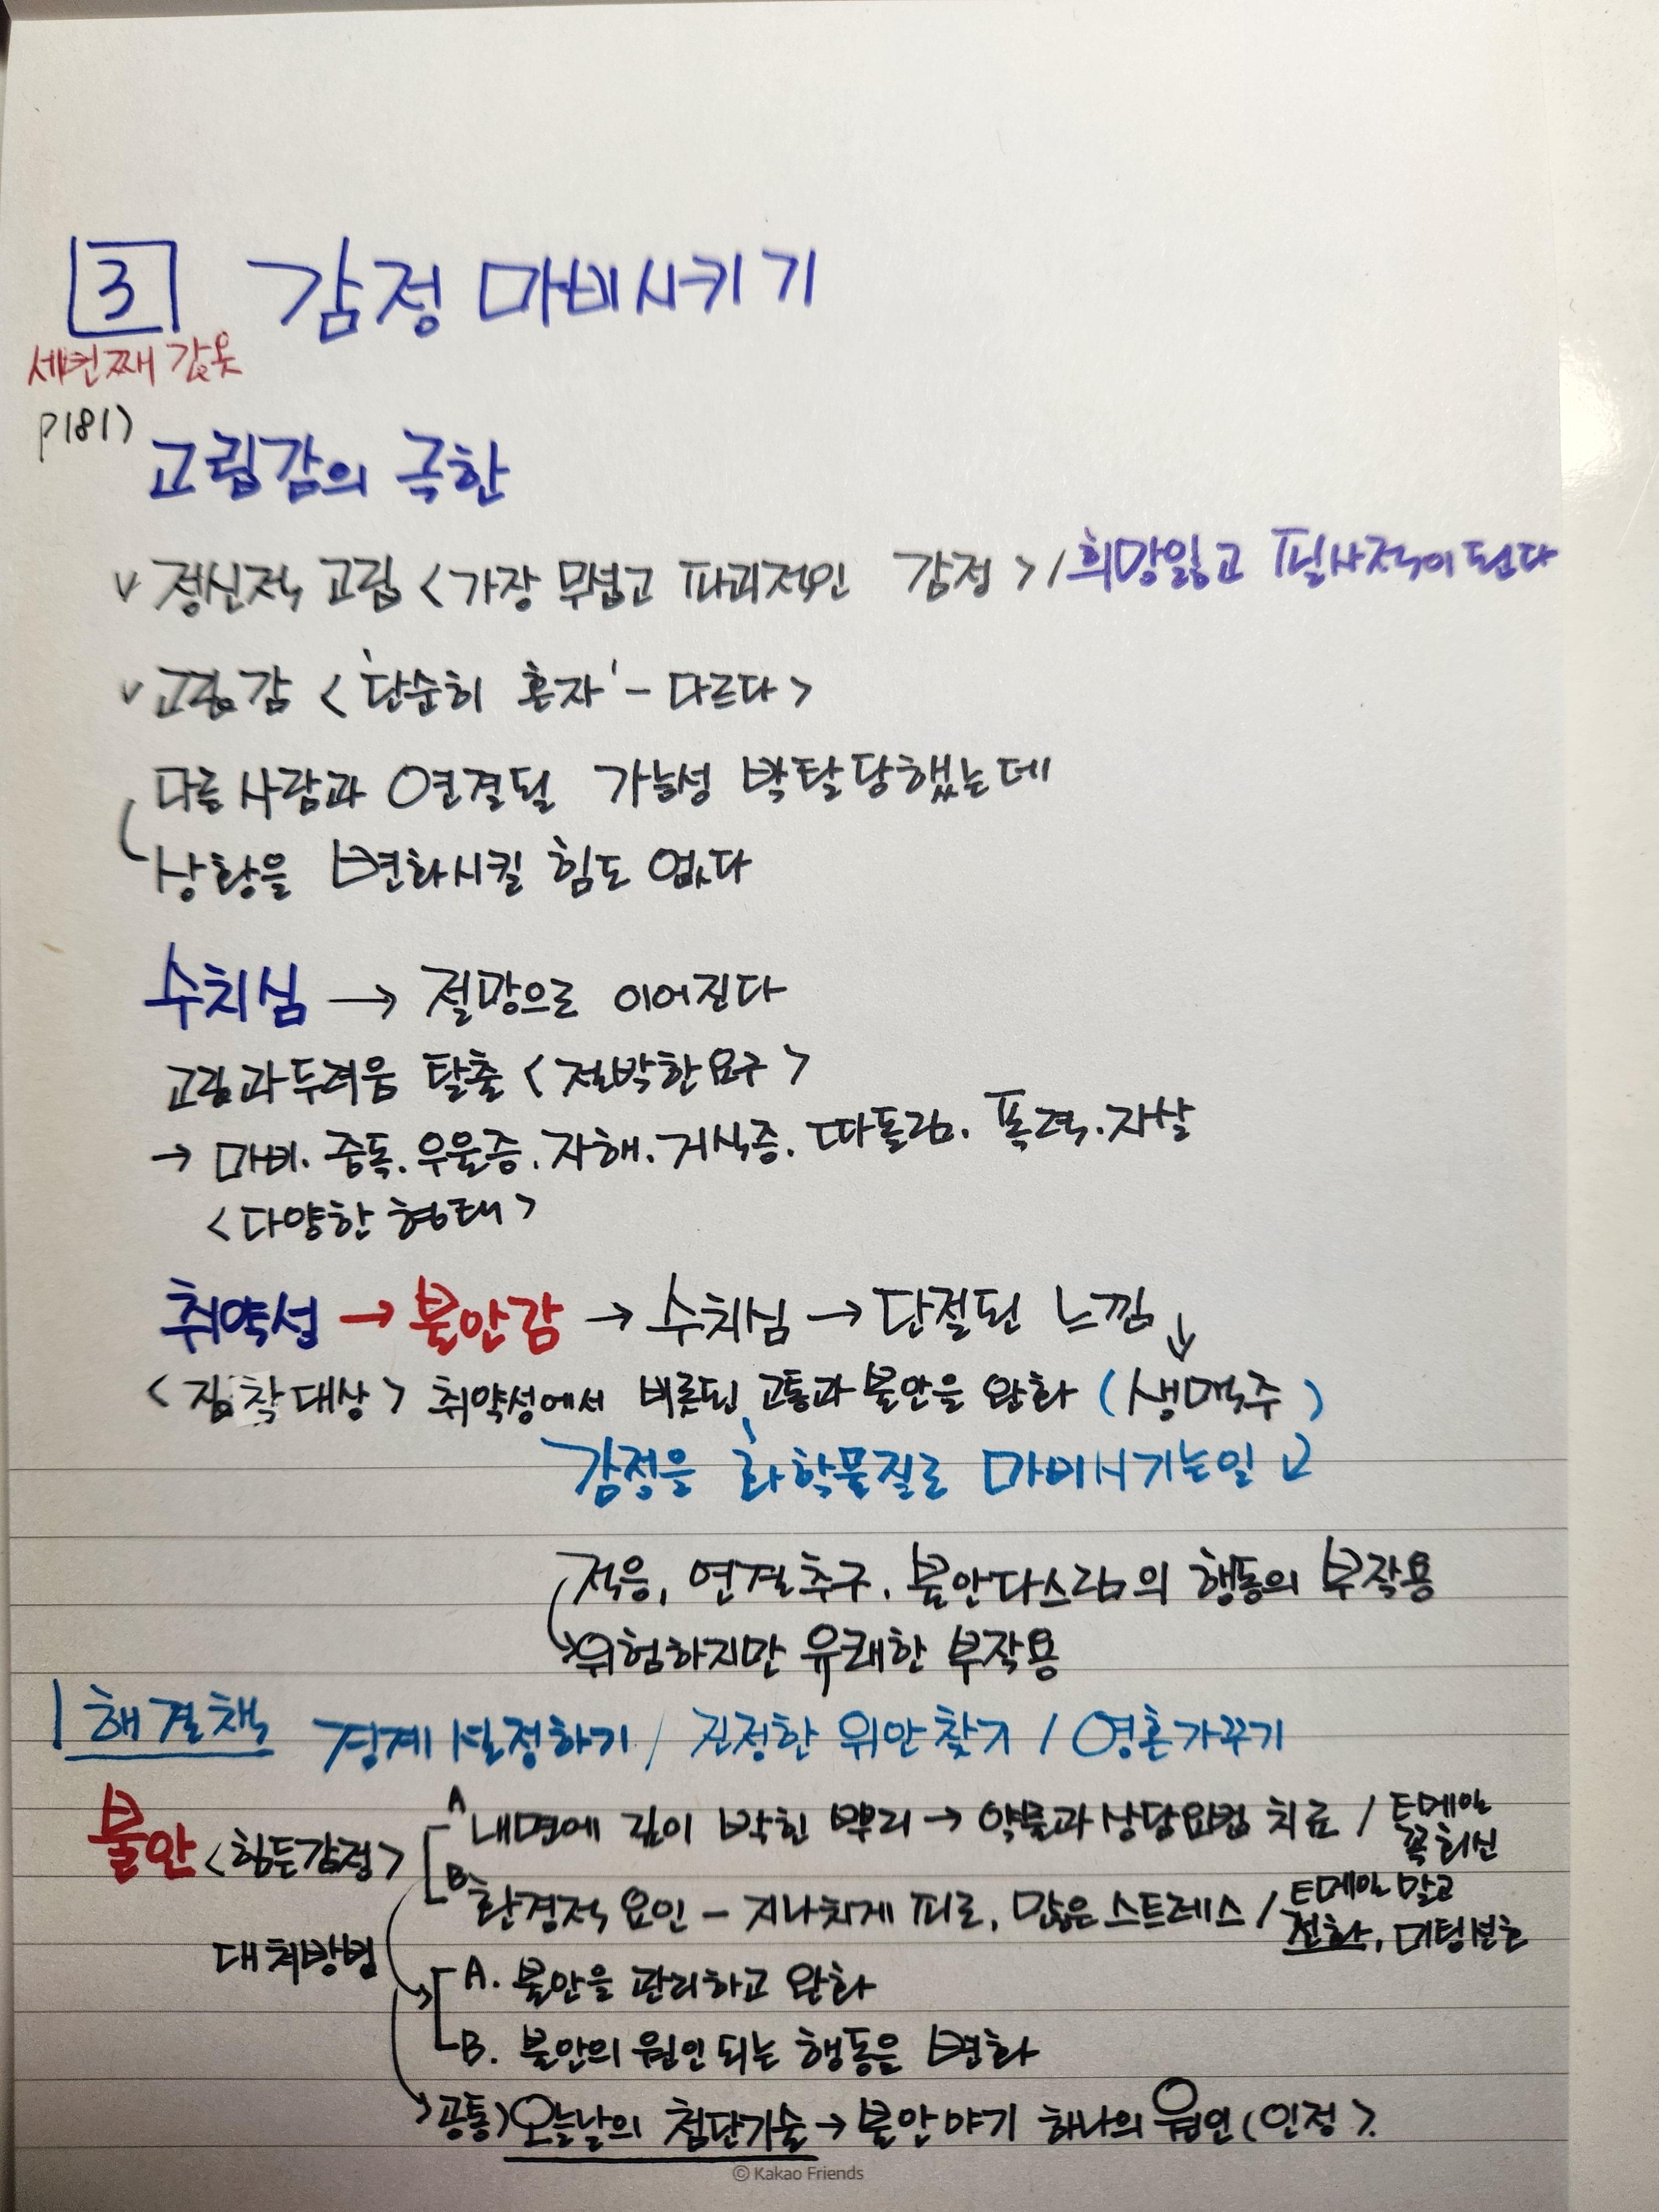 3 감정 마비시키기
세번째 갑옷
P181)
고립감의 극한
v 정신적 고립 <가장 무섭고 파괴적인 감정> / 희망잃고 필사적이 된다
v 고립감 <'단순히 혼자' - 다르다>
다른 사람과 연결될 가능성 박탈당했는데
상황을 변화시킬 힘도 없다
수치심 → 절망으로 이어진다
고립과 두려움 탈출 <절박한 요구>
→ 마비. 중독. 우울증. 자해. 거식증. 따돌림. 폭력. 자살
<다양한 형태>
취약성 → 불안감 → 수치심 → 단절된 느낌 ↓
<집착대상> 취약성에서 비롯된 고통과 불안을 완화 (생맥주)
감정을 '화학물질로 마비시키는일
적응, 연결추구, 불안다스림의 행동의 부작용
위험하지만 유쾌한 부작용
해결책 경계 설정하기 / 진정한 위안 찾기 / 영혼가꾸기
불안 <힘든감정>
A 내면에 깊이 박힌 뿌리 → 약물과 상담요법 치료 / E메일 꼭 회신
B 환경적 요인 - 지나치게 피로, 많은 스트레스 / E메일 말고 전화, 미팅선호
대처방법
A. 불안을 관리하고 완화
B. 불안의 원인 되는 행동을 변화
공통) 오늘날의 첨단기술 → 불안 야기 하나의 원인 (인정).
© Kakao Friends